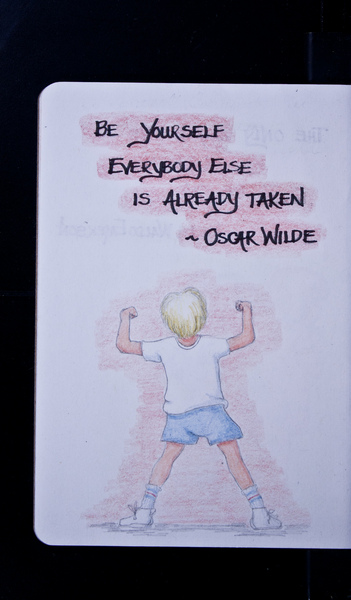 Be Yourself
Everybody Else
is Already taken
~ Oscar Wilde